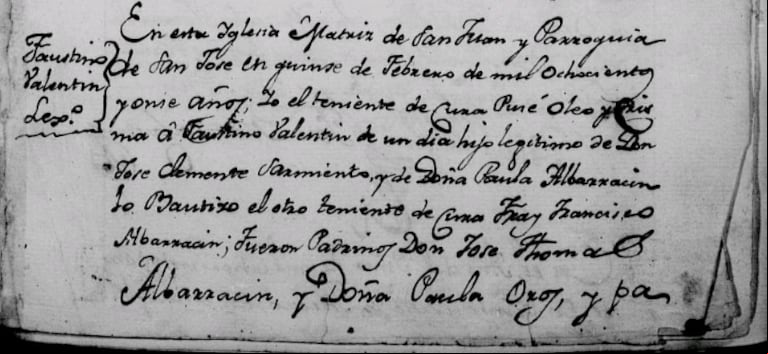 Faustino
Valentin
Lexº
En esta Iglesia Matriz de San Juan y Parroquia
de San Jose en quinse de Febrero de mil ochocientos
y onse años; Yo el teniente de Cura Puse Oleo y Cris
ma â Faustino Valentin de un dia hijo legitimo de Don
Jose Clemente Sarmiento, y de Doña Paula Albarracin
lo Bautizo el otro teniente de Cura Fray Francisco
Albarracin; Fueron Padrinos Don Jose Thomas
Albarracin, y Doña Paula Oros, y pa